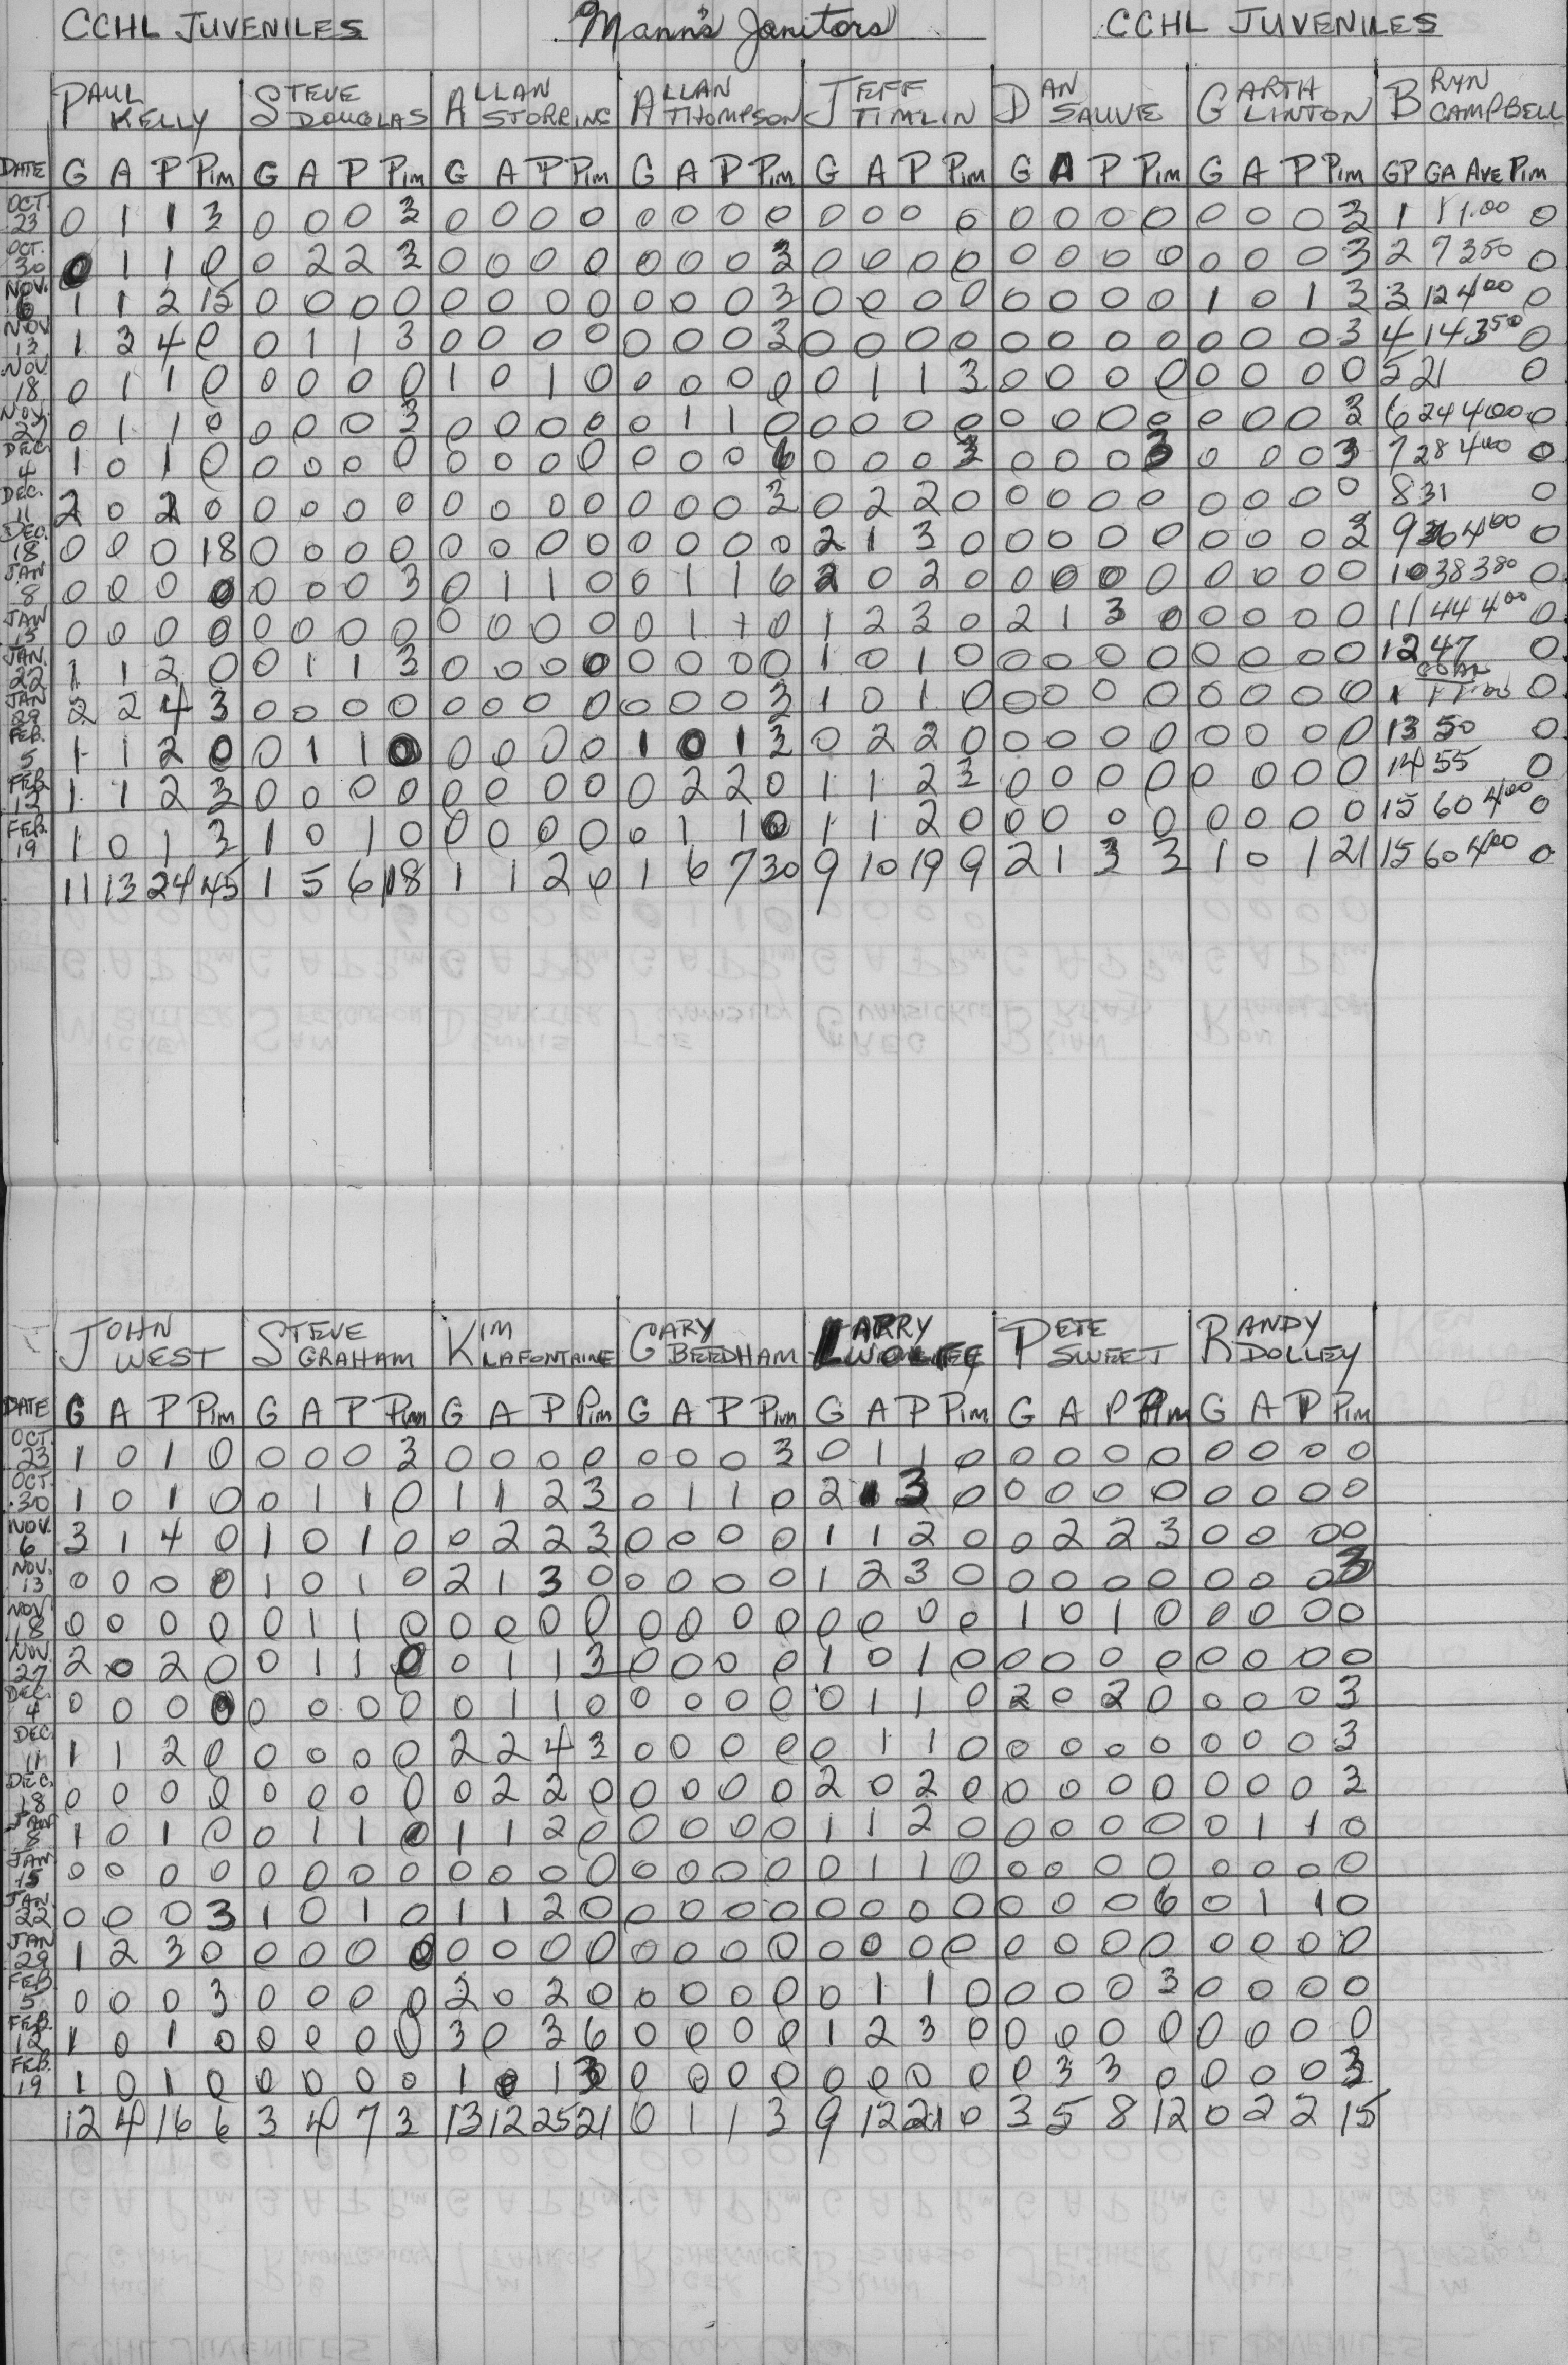 CCHL JUVENILES Mann's Janitors CCHL JUVENILES
PAUL KELLY STEVE DOUGLAS ALLAN STORRING ALLAN THOMPSON JEFF TIMLIN DAN SAUVE GARTH LINTON BRYN CAMPBELL
DATE G A P Pim G A P Pim G A P Pim G A P Pim G A P Pim G A P Pim G A P Pim GP GA Ave Pim
OCT. 23 0 1 1 3 0 0 0 3 0 0 0 0 0 0 0 0 0 0 0 0 0 0 0 0 0 0 0 3 1 1 1.00 0
OCT. 30 0 1 1 0 0 2 2 3 0 0 0 0 0 0 0 3 0 0 0 0 0 0 0 0 0 0 0 3 2 7 350 0
NOV. 6 1 1 2 15 0 0 0 0 0 0 0 0 0 0 0 3 0 0 0 0 0 0 0 0 1 0 1 3 3 12 400 0
NOV 13 1 3 4 0 0 1 1 3 0 0 0 0 0 0 0 3 0 0 0 0 0 0 0 0 0 0 0 3 4 14 350 0
NOV 18 0 1 1 0 0 0 0 0 1 0 1 0 0 0 0 0 0 1 1 3 0 0 0 0 0 0 0 0 5 21 0
NOV. 27 0 1 1 0 0 0 0 3 0 0 0 0 0 1 1 0 0 0 0 0 0 0 0 0 0 0 0 3 6 24 400 0
DEC 4 1 0 1 0 0 0 0 0 0 0 0 0 0 0 0 6 0 0 0 3 0 0 0 3 0 0 0 3 7 28 400 0
DEC. 11 2 0 2 0 0 0 0 0 0 0 0 0 0 0 0 3 0 2 2 0 0 0 0 0 0 0 0 0 8 31 0
DEC. 18 0 0 0 18 0 0 0 0 0 0 0 0 0 0 0 0 2 1 3 0 0 0 0 0 0 0 0 3 9 36 400 0
JAN 8 0 0 0 0 0 0 0 3 0 1 1 0 0 1 1 6 2 0 2 0 0 0 0 0 0 0 0 0 10 38 380 0
JAN 15 0 0 0 0 0 0 0 0 0 0 0 0 0 1 1 0 1 2 3 0 2 1 3 0 0 0 0 0 11 44 400 0
JAN. 22 1 1 2 0 0 1 1 3 0 0 0 0 0 0 0 0 1 0 1 0 0 0 0 0 0 0 0 0 12 47 0
JAN 29 2 2 4 3 0 0 0 0 0 0 0 0 0 0 0 3 1 0 1 0 0 0 0 0 0 0 0 0 1 1 1.00 0
FEB. 5 1 1 2 0 0 1 1 0 0 0 0 0 1 0 1 3 0 2 2 0 0 0 0 0 0 0 0 0 13 50 0
FEB 12 1 1 2 3 0 0 0 0 0 0 0 0 0 2 2 0 1 1 2 3 0 0 0 0 0 0 0 0 14 55 0
FEB. 19 1 0 1 3 1 0 1 0 0 0 0 0 0 1 1 0 1 1 2 0 0 0 0 0 0 0 0 0 15 60 400 0
11 13 24 45 1 5 6 18 1 1 2 0 1 6 7 30 9 10 19 9 2 1 3 3 1 0 1 21 15 60 400 0
JOHN WEST STEVE GRAHAM KIM LAFONTAINE GARY BEEDHAM LARRY PETE SWEET RANDY DOLLEY
DATE G A P Pim G A P Pim G A P Pim G A P Pim G A P Pim G A P Pim G A P Pim
OCT. 23 1 0 1 0 0 0 0 3 0 0 0 0 0 0 0 3 0 1 1 0 0 0 0 0 0 0 0 0
OCT. 30 1 0 1 0 0 1 1 0 1 1 2 3 0 1 1 0 2 1 3 0 0 0 0 0 0 0 0 0
NOV. 6 3 1 4 0 1 0 1 0 0 2 2 3 0 0 0 0 1 1 2 0 0 2 2 3 0 0 0 0
NOV. 13 0 0 0 0 1 0 1 0 2 1 3 0 0 0 0 0 1 2 3 0 0 0 0 0 0 0 0 3
NOV 18 0 0 0 0 0 1 1 0 0 0 0 0 0 0 0 0 0 0 0 0 1 0 1 0 0 0 0 0
NOV. 27 2 0 2 0 0 1 1 0 0 1 1 3 0 0 0 0 1 0 1 0 0 0 0 0 0 0 0 0
DEC. 4 0 0 0 0 0 0 0 0 0 1 1 0 0 0 0 0 0 1 1 0 2 0 2 0 0 0 0 3
DEC. 11 1 1 2 0 0 0 0 0 2 2 4 3 0 0 0 0 0 1 1 0 0 0 0 0 0 0 0 3
DEC. 18 0 0 0 0 0 0 0 0 0 2 2 0 0 0 0 0 2 0 2 0 0 0 0 0 0 0 0 3
JAN 8 1 0 1 0 0 1 1 0 1 1 2 0 0 0 0 0 1 1 2 0 0 0 0 0 0 1 1 0
JAN 15 0 0 0 0 0 0 0 0 0 0 0 0 0 0 0 0 0 1 1 0 0 0 0 0 0 0 0 0
JAN. 22 0 0 0 3 1 0 1 0 1 1 2 0 0 0 0 0 0 0 0 0 0 0 0 6 0 1 1 0
JAN 29 1 2 3 0 0 0 0 0 0 0 0 0 0 0 0 0 0 0 0 0 0 0 0 0 0 0 0 0
FEB 5 0 0 0 3 0 0 0 0 2 0 2 0 0 0 0 0 0 1 1 0 0 0 0 3 0 0 0 0
FEB. 12 1 0 1 0 0 0 0 0 3 0 3 6 0 0 0 0 1 2 3 0 0 0 0 0 0 0 0 0
FEB. 19 1 0 1 0 0 0 0 0 1 0 1 3 0 0 0 0 0 0 0 0 0 3 3 0 0 0 0 3
12 4 16 6 3 4 7 3 13 12 25 21 0 1 1 3 9 12 21 0 3 5 8 12 0 2 2 15